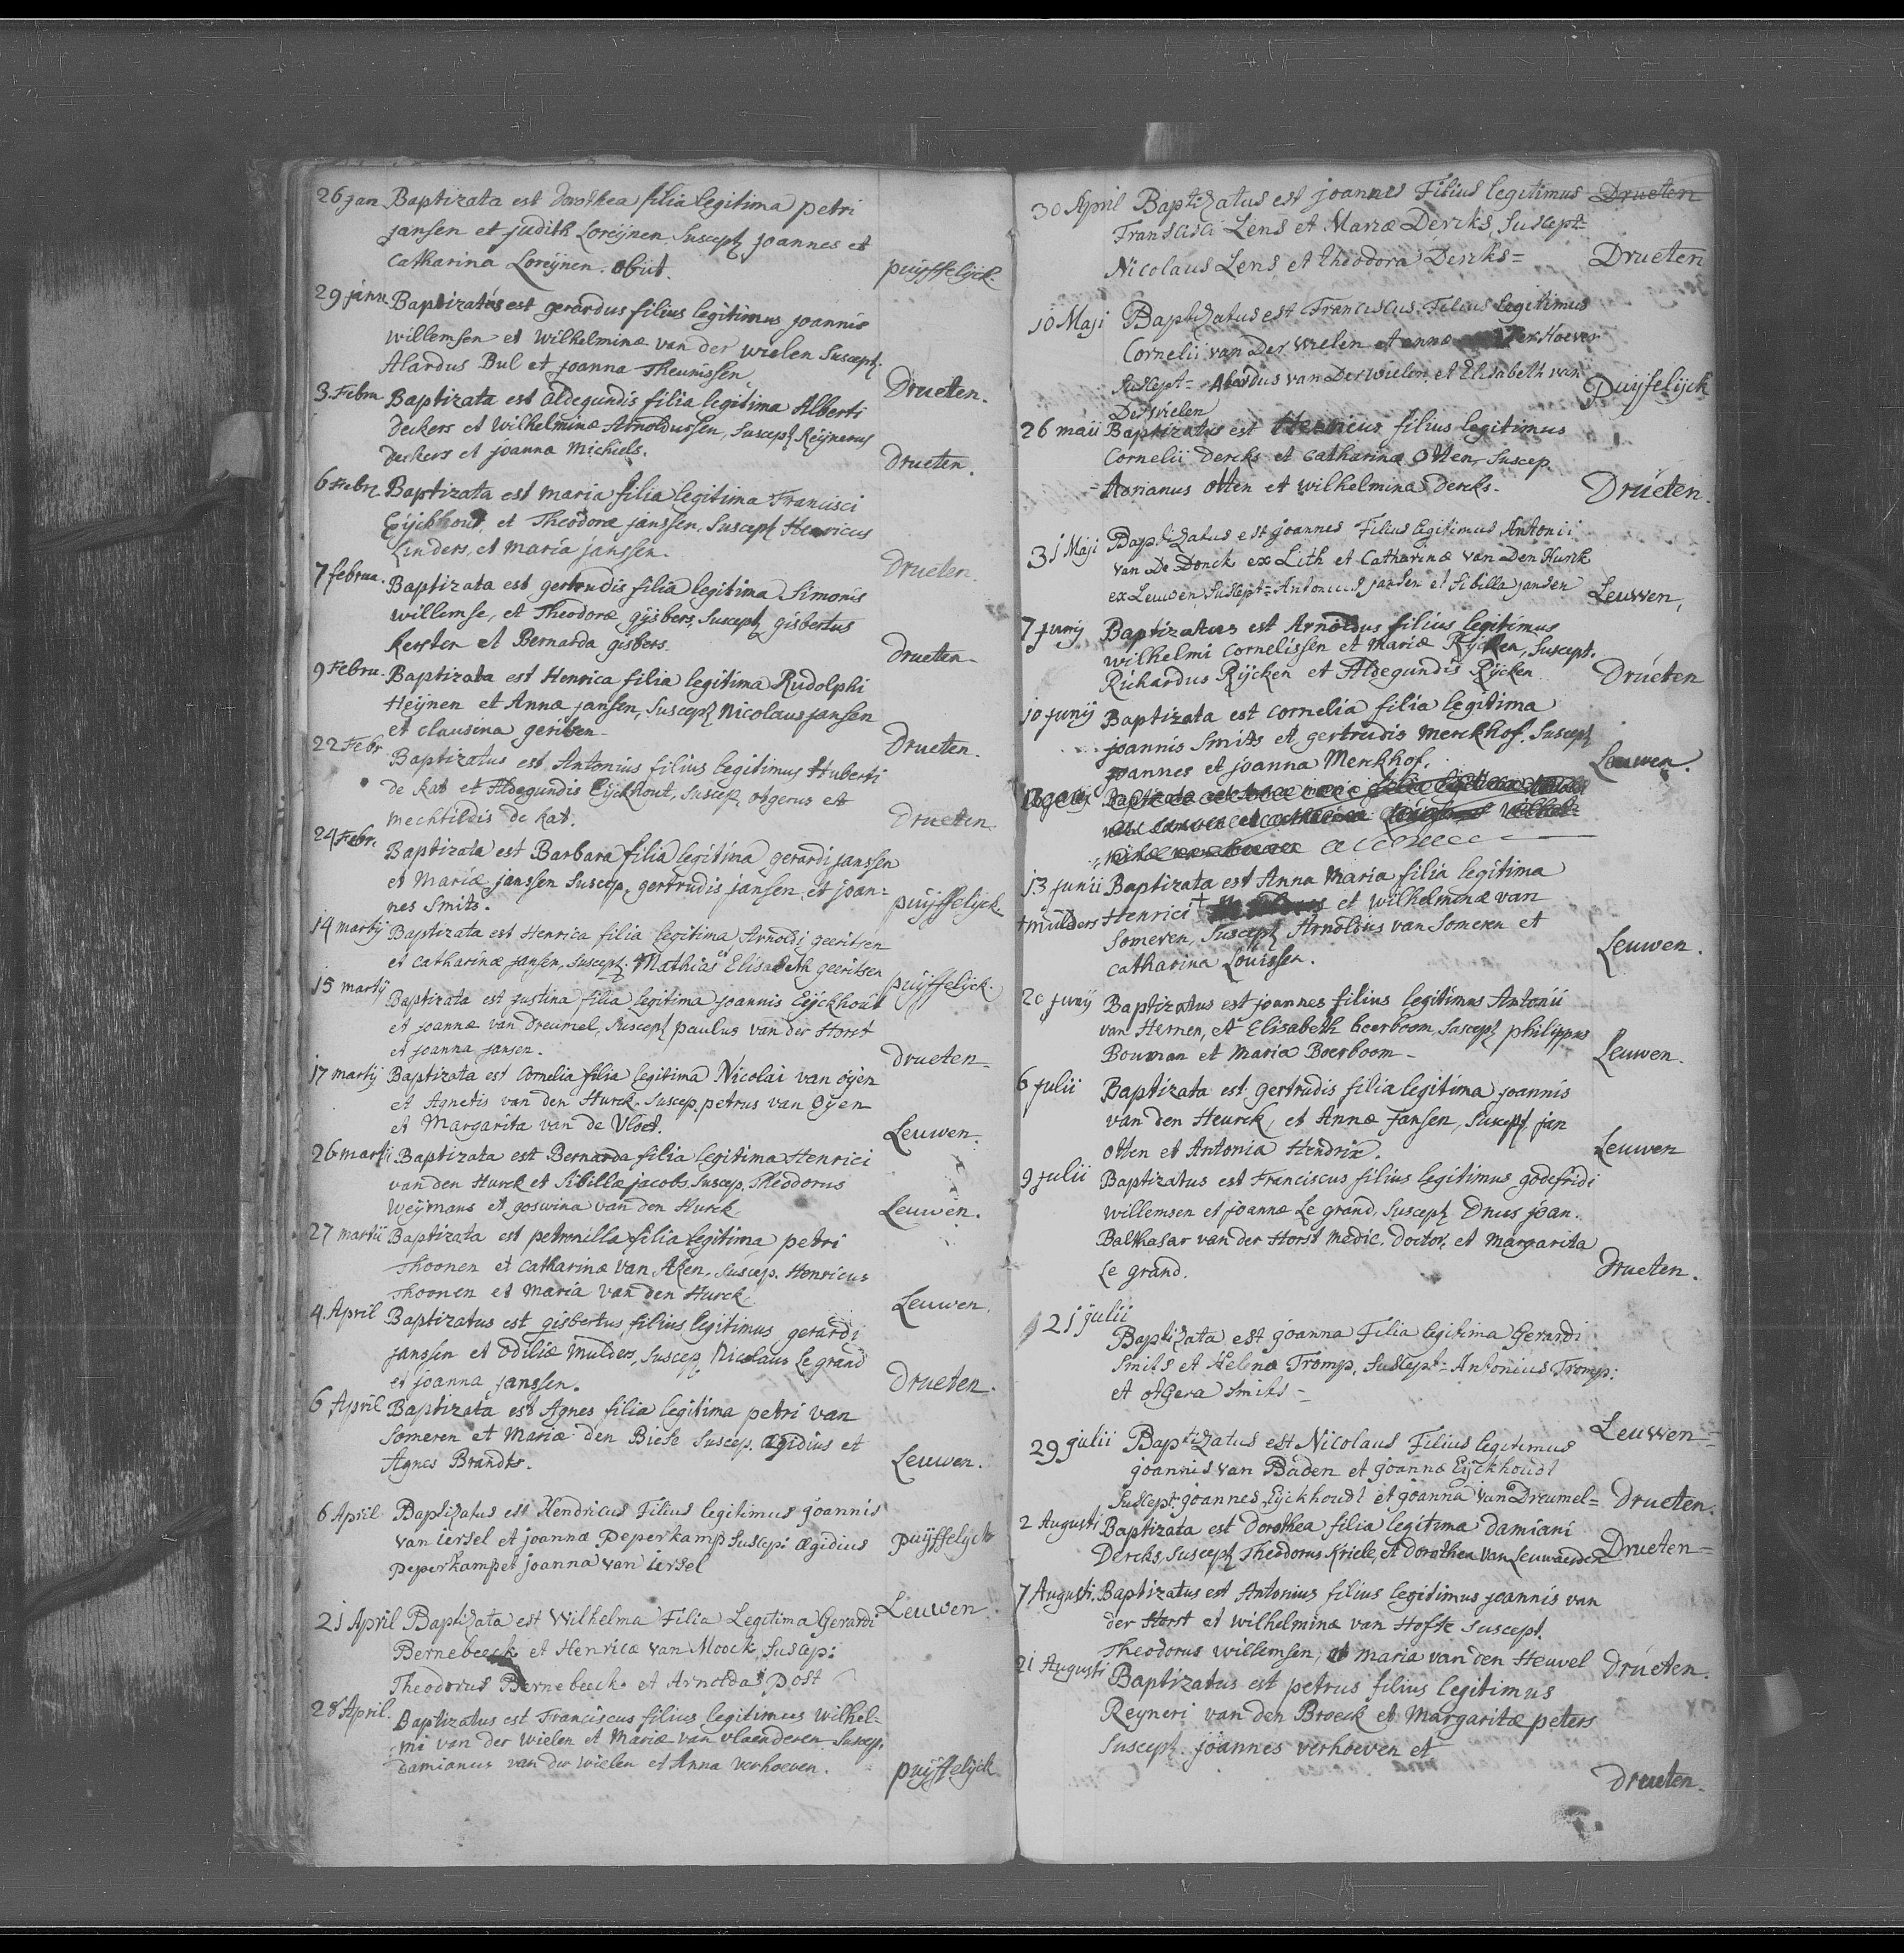 26 jan Baptizata est Dorothea filia legitima petri
jansen et judith Loreijnen, Suscept joannes et
Catharina Loreijnen. obiit. puijffelijck.
29 janu Baptizatus est gerardus filius legitimus joannis
willemsen et Wilhelminæ van der wielen Suscept.
Alardus Bul et joanna Theunissen Drueten.
3 Febru Baptizata est aldegundis filia legitima Alberti
deckers et wilhelminæ Arnoldussen, Suscept Reijnerus
deckers et joanna michiels. Drueten.
6 Febr Baptizata est maria filia legitima Francisci
Eijckhout et Theodoræ janssen. Suscept Henricus
Linders, et maria janssen. Drueten.
7 februa. Baptizata est gertrudis filia legitima Simonis
willemse, et Theodoræ gijsbers, Suscept gisbertus
kersten et Bernarda gisbers. Drueten-
9 Febru. Baptizata est Henrica filia legitima Rudolphi
Heijnen et Annæ jansen, Suscept Nicolaus jansen
et clausina geritsen- Drueten.
22 Febr Baptizatus est Antonius filius legitimus Huberti
de kat et Aldegundis Eijckhout, Suscep otgerus et
mechtildis de kat. Drueten.
24 Febr. Baptizata est Barbara filia legitima gerardi janssen
et Mariæ janssen Suscep, gertrudis jansen et joan=
nes Smits. puijffelijck.
14 martij Baptizata est Henrica filia legitima Arnoldi geeritsen
et catharinæ jansen, suscept. Mathias et Elisabeth geeritsen puijffelijck.
15 martij Baptizata est justina filia legitima joannis Eijckhout
et joannæ van dreumel, Suscept paulus van der Horst
et joanna jansen. drueten-
17 martij Baptizata est Cornelia filia legitima Nicolai van oijen
et Agnetis van den Hurck. Suscep. petrus van Oijen
et Margarita van de Vloet. Leuwen.
26 marti Baptizata est Bernarda filia legitima Henrici
van den Hurck et Sibillæ jacobs. Suscep. Theodorus
Weijmans et goswina van den Hurck Leuwen.
27 martii Baptizata est petronilla filia legitima petri
Thoonen et catharinæ van Aken, Suscep. Henricus
Thoonen et maria van den Hurck. Leuwen.
4. April Baptizatus est gisbertus filius legitimus gerardi
janssen et Odiliæ mulders, Suscep Nicolaus Le grand
et joanna janssen. Drueten.
6 April Baptizata est Agnes filia legitima petri van
Someren et Mariæ den Biese Suscep. ægidius et
Agnes Brandts. Leuwen.
6 April Baptizatus est Hendricus Filius legitimus joannis
van iersel et joannæ Peperkamp Suscep: ægidius puijffelyck
peperkamp et joanna van iersel
21 April Baptizata est Wilhelma Filia Legitima Gerardi Leuwen.
Bernebeeck et Henricæ van Moock, Suscep:
Theodorus Bernebeeck et Arnolda Post
28 April. Baptizatus est Franciscus filius legitimus wilhel=
mi van der wielen et Mariæ van vlaenderen Suscep.
damianus van der wielen et Anna verhoeven. puijffelijck
30 April Baptizatus est joannes Filius legitimus Drueten
Francisci Lens et Mariæ Dercks, Suscept=
Nicolaus Lens et theodora Dercks= Drueten
10 Maji Baptizatus est Franciscus Filius legitimus
Cornelii van Der wielen et annæ ver Hoeven
Suscept= Alardus van Der wielen et Elisabeth van Puijfelijck
Der wielen
26 maii Baptizatus est Henricus filius legitimus
Cornelii dercks et catharinæ Otten, Suscep
Adrianus otten et wilhelmina dercks. Drueten.
31 Maji Baptizatus est joannes Filius legitimus Antonii
van De Donck ex Lith et Catharinæ van Den Hurck
ex Leuwen, Suscept= Antonius jansen et Sibilla jansen Leuwen,
7 junij Baptizatus est Arnoldus filius legitimus
wilhelmi Cornelissen et Mariæ Rijcken, Suscept.
Richardus Rijcken et Aldegundis Rijcken Drueten
10 junij Baptizata est cornelia filia legitima
joannis Smits et gertrudis merckhof. Suscept
joannes et joanna Merckhof. Leuwen.
13 junii Baptizata est Anna Maria filia legitima
+mulders Henrici + et wilhelminæ van
Someren, Suscept Arnoldus van Someren et
catharina Louissen. Leuwen.
20 junij Baptizatus est joannes filius legitimus Antonii
van Hernen, et Elisabeth beerboom, Suscept philippus
Bouman et Maria Boerboom- Leuwen.
6 julii Baptizata est gertrudis filia legitima joannis
van den Heurck, et Annæ jansen, Suscept. jan
otten et Antonia Hendrix. Leuwen
9 julii Baptizatus est Franciscus filius legitimus godefridi
willemsen et joannæ Le grand, Suscept Dnus joan.
Balthasar van der Horst medic. doctor, et Margarita
Le grand. Drueten.
21 julii
Baptizata est joanna Filia legitima Gerardi
Smits et Helenæ Tromp, Suscept= Antonius Tromp:
et otgera Smits= Leuwen=
29 julii Baptizatus est Nicolaus Filius legitimus
joannis van Baden et joannæ Eijckhoudt
Suscept= joannes Eijckhoudt et joanna van Dreumel= Drueten.
2 Augusti Baptizata est Dorothea filia legitima damiani
Dercks, Suscept Theodorus Kriele, et dorothea van Leuwaerden Drueten=
7 Augusti. Baptizatus est Antonius filius legitimus joannis van
der Horst et wilhelminæ van Hofte Suscept.
Theodorus willemsen, et maria van den Heuvel Drueten.
21 Augusti Baptizatus est petrus filius legitimus
Reyneri van den Broeck et Margaritæ peters
Suscept. joannes verhoeven et
Drueten.